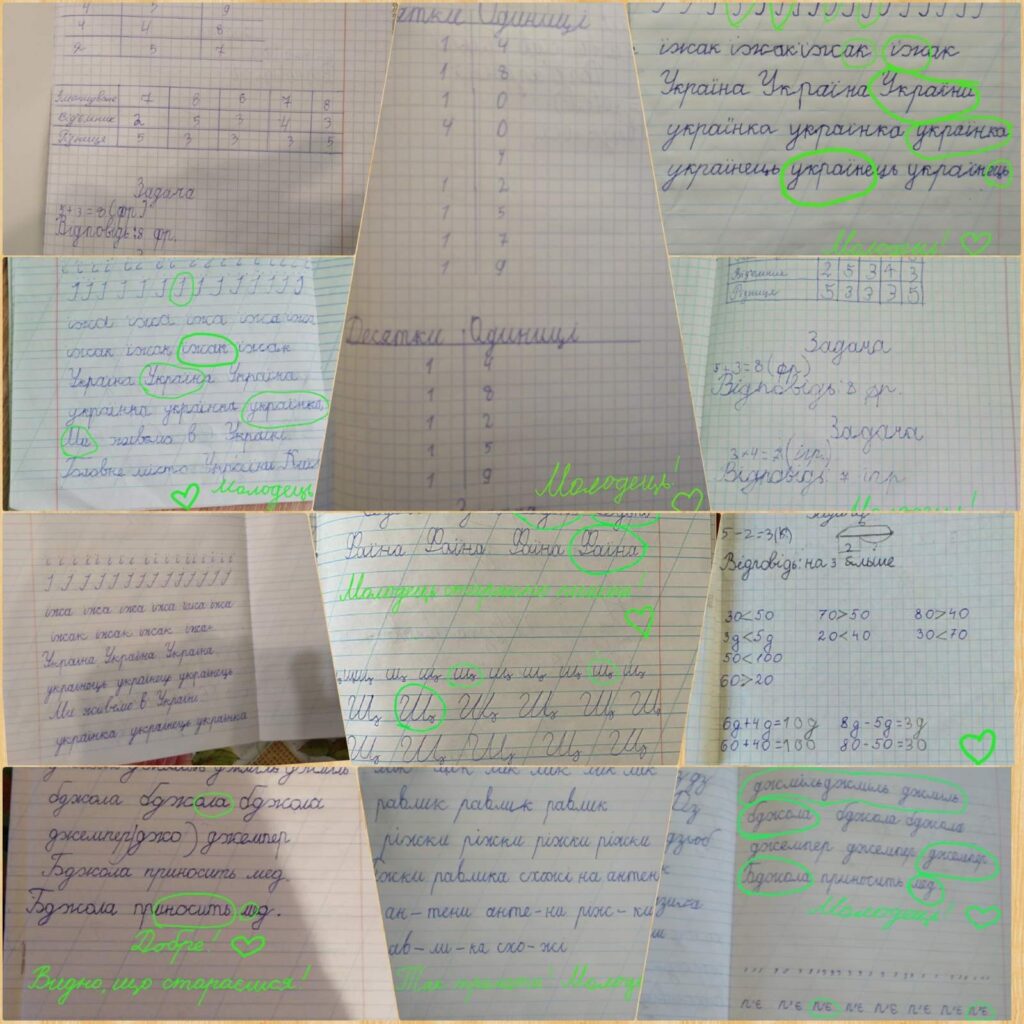 4 5 9
4 4 8
2 5 7
Зменшуване 7 8 6 7 8
Від'ємник 2 5 3 4 3
Різниця 5 3 3 3 5
Задача
5+3=8(фр.)
Відповідь: 8 фр.
Десятки Одиниці
1 4
1 8
1 0
4 0
1 2
1 5
1 7
1 9
Десятки Одиниці
1 4
1 8
1 2
1 5
1 9
Молодець!
їжак їжак їжак їжак
Україна Україна Україна
українка українка українка
українець українець українець
Молодець!
їжа їжа їжа їжа їжа
їжак їжак їжак їжак
Україна Україна Україна
українка українка українка
Ми живемо в Україні
Головне місто України
Молодець
Від'ємник 2 5 3 4 3
Різниця 5 3 3 3 5
Задача
5+3=8(фр.)
Відповідь: 8 фр.
Задача
Відповідь 7 ігр
їжа їжа їжа їжа їжа їжа
їжак їжак їжак їжак
Україна Україна Україна
українець українець українець
Ми живемо в Україні.
українка українець українка
Фаїна Фаїна Фаїна Фаїна
Молодець
щ щ щ щ щ щ щ щ щ
Щ Щ Щ Щ Щ Щ
Щ Щ Щ Щ Щ
5-2=3(к)
2
Відповідь: на 3 більше
30<50 70>50 80>40
3д<5д 20<40 30<70
50<100
60>20
6д+4д=10д 8д-5д=3д
60+40=100 80-50=30
бджола бджола бджола
джемпер(джо) джемпер
Бджола приносить мед.
Бджола приносить мед.
Добре!
Видно, що стараєшся!
равлик равлик равлик
ріжки ріжки ріжки ріжки
равлика схожі на антен
ан-тени анте-на ріж-ки
рав-ли-ка схо-жі
Так тримати! Молод
джміль джміль джміль
бджола бджола бджола
джемпер джемпер джемпер
Бджола приносить мед.
Молодець!